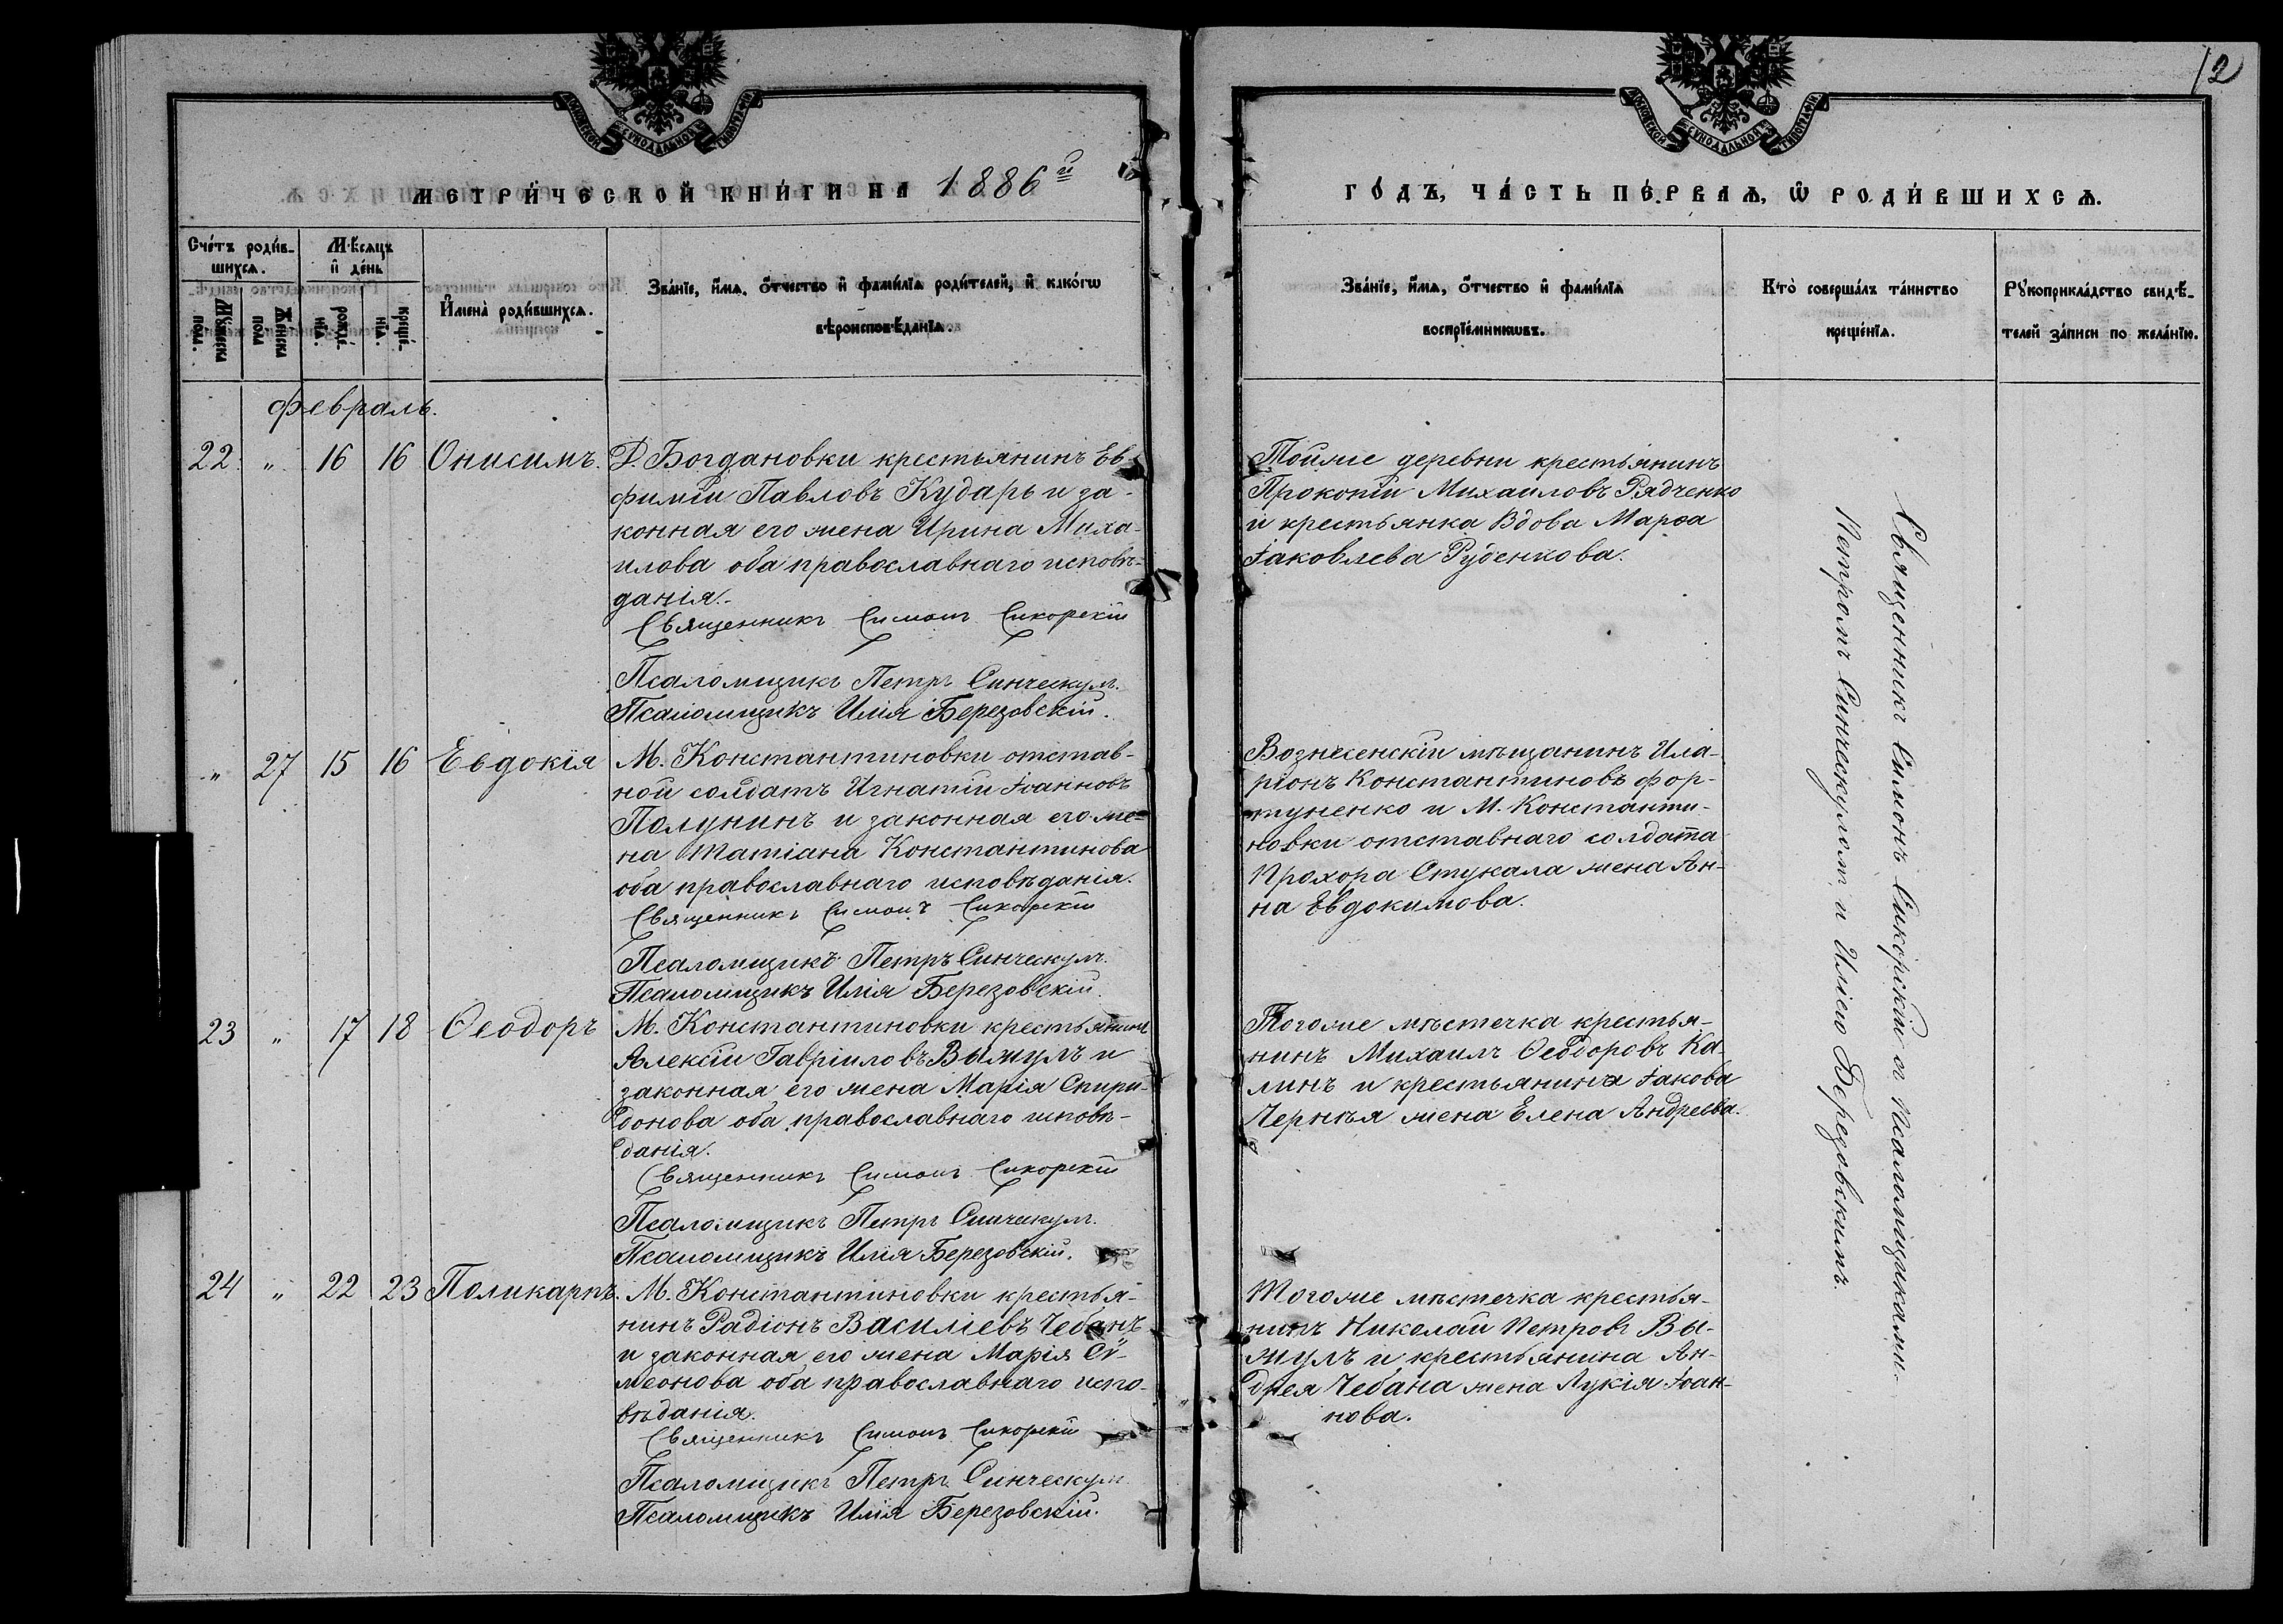 12
МОСКОВСКОЙ СѴНОДАЛЬНОЙ ТИПОГРАФІИ
МОСКОВСКОЙ СѴНОДАЛЬНОЙ ТИПОГРАФІИ
МЕТРИ́ЧЕСКОЙ КНИ́ГИ НА 1886й
ГО́ДЪ, ЧА́СТЬ ПЕ́РВАѦ, Ѡ РОДИ́ВШИХСѦ.
Сче́тъ роди́в-
шихсѧ.
Мꙋ́жеска пола.
Же́нска пола
Мѣ́сѧцъ
и҆ де́нь
рожде́-
нїѧ.
креще́-
нїѧ.
И҆мена̀ роди́вшихсѧ.
Зва́нїе, и҆́мѧ, ѻ҆́тчество и҆ фами́лїѧ роди́телей, и҆ како́гѡ
вѣроисповѣ́данїѧ.
Зва́нїе, и҆́мѧ, ѻ҆́тчество и҆ фами́лїѧ
воспрїе́мникѡвъ.
Кто̀ соверша́лъ та́инство
креще́нїѧ.
Рꙋкоприкла́дство свидѣ́-
телей за́писи по жела́нїю.
Февраль.
22. " 16 16 Онисимъ.
Д. Богдановки крестьянинъ Ев-
фимій Павловъ Кударь и за-
конная его жена Ирина Миха-
илова оба православнаго исповѣ-
данія.-
Священникъ Симонъ Сикорскій
Псаломщикъ Петръ Синческулъ.
Псаломщикъ Илія Березовскій.
Тойже деревни крестьянинъ
Прокопій Михаиловъ Рядченко
и крестьянка Вдова Марѳа
Іаковлева Руденкова.
" 27 15 16 Евдокія
М. Константиновки отстав-
ной солдатъ Игнатій Іоанновъ
Полунинъ и законная его же-
на Татіана Константинова
оба православнаго исповѣданія.
Священникъ Симонъ Сикорскій
Псаломщикъ Петръ Синческулъ.
Псаломщикъ Илія Березовскій.
Вознесенскій мѣщанинъ Ила-
ріонъ Константиновъ Фор-
туненко и М. Константи-
новки отставнаго солдата
Прохора Стукала жена Ан-
на Евдокимова.
23 " 17 18 Ѳеодоръ
М. Константиновки крестьянинъ
Алексій Гавріиловъ Выжулъ и
законная его жена Марія Спири-
донова оба православнаго исповѣ-
данія.
Священникъ Симонъ Сикорскій
Псаломщикъ Петръ Синческулъ.
Псаломщикъ Илія Березовскій.
Тогоже мѣстечка крестья-
нинъ Михаилъ Ѳеодоровъ Ка-
линъ и крестьянина Іакова
Чернѣя жена Елена Андреева.
24 " 22 23 Поликарпъ.
М. Константиновки крестья-
нинъ Радіонъ Василіевъ Чебанъ
и законная его жена Марія Сѵ-
меонова оба православнаго испо-
вѣданія.
Священникъ Симонъ Сикорскій
Псаломщикъ Петръ Синческулъ
Псаломщикъ Илія Березовскій.
Тогоже мѣстечка крестья-
нинъ Николай Петровъ Вы-
жулъ и крестьянина Ан-
дрея Чебана жена Лукія Іоан-
нова.
Священникъ Симонъ Сикорскій съ Псаломщиками
Петромъ Синческуломъ и Иліею Березовскимъ.